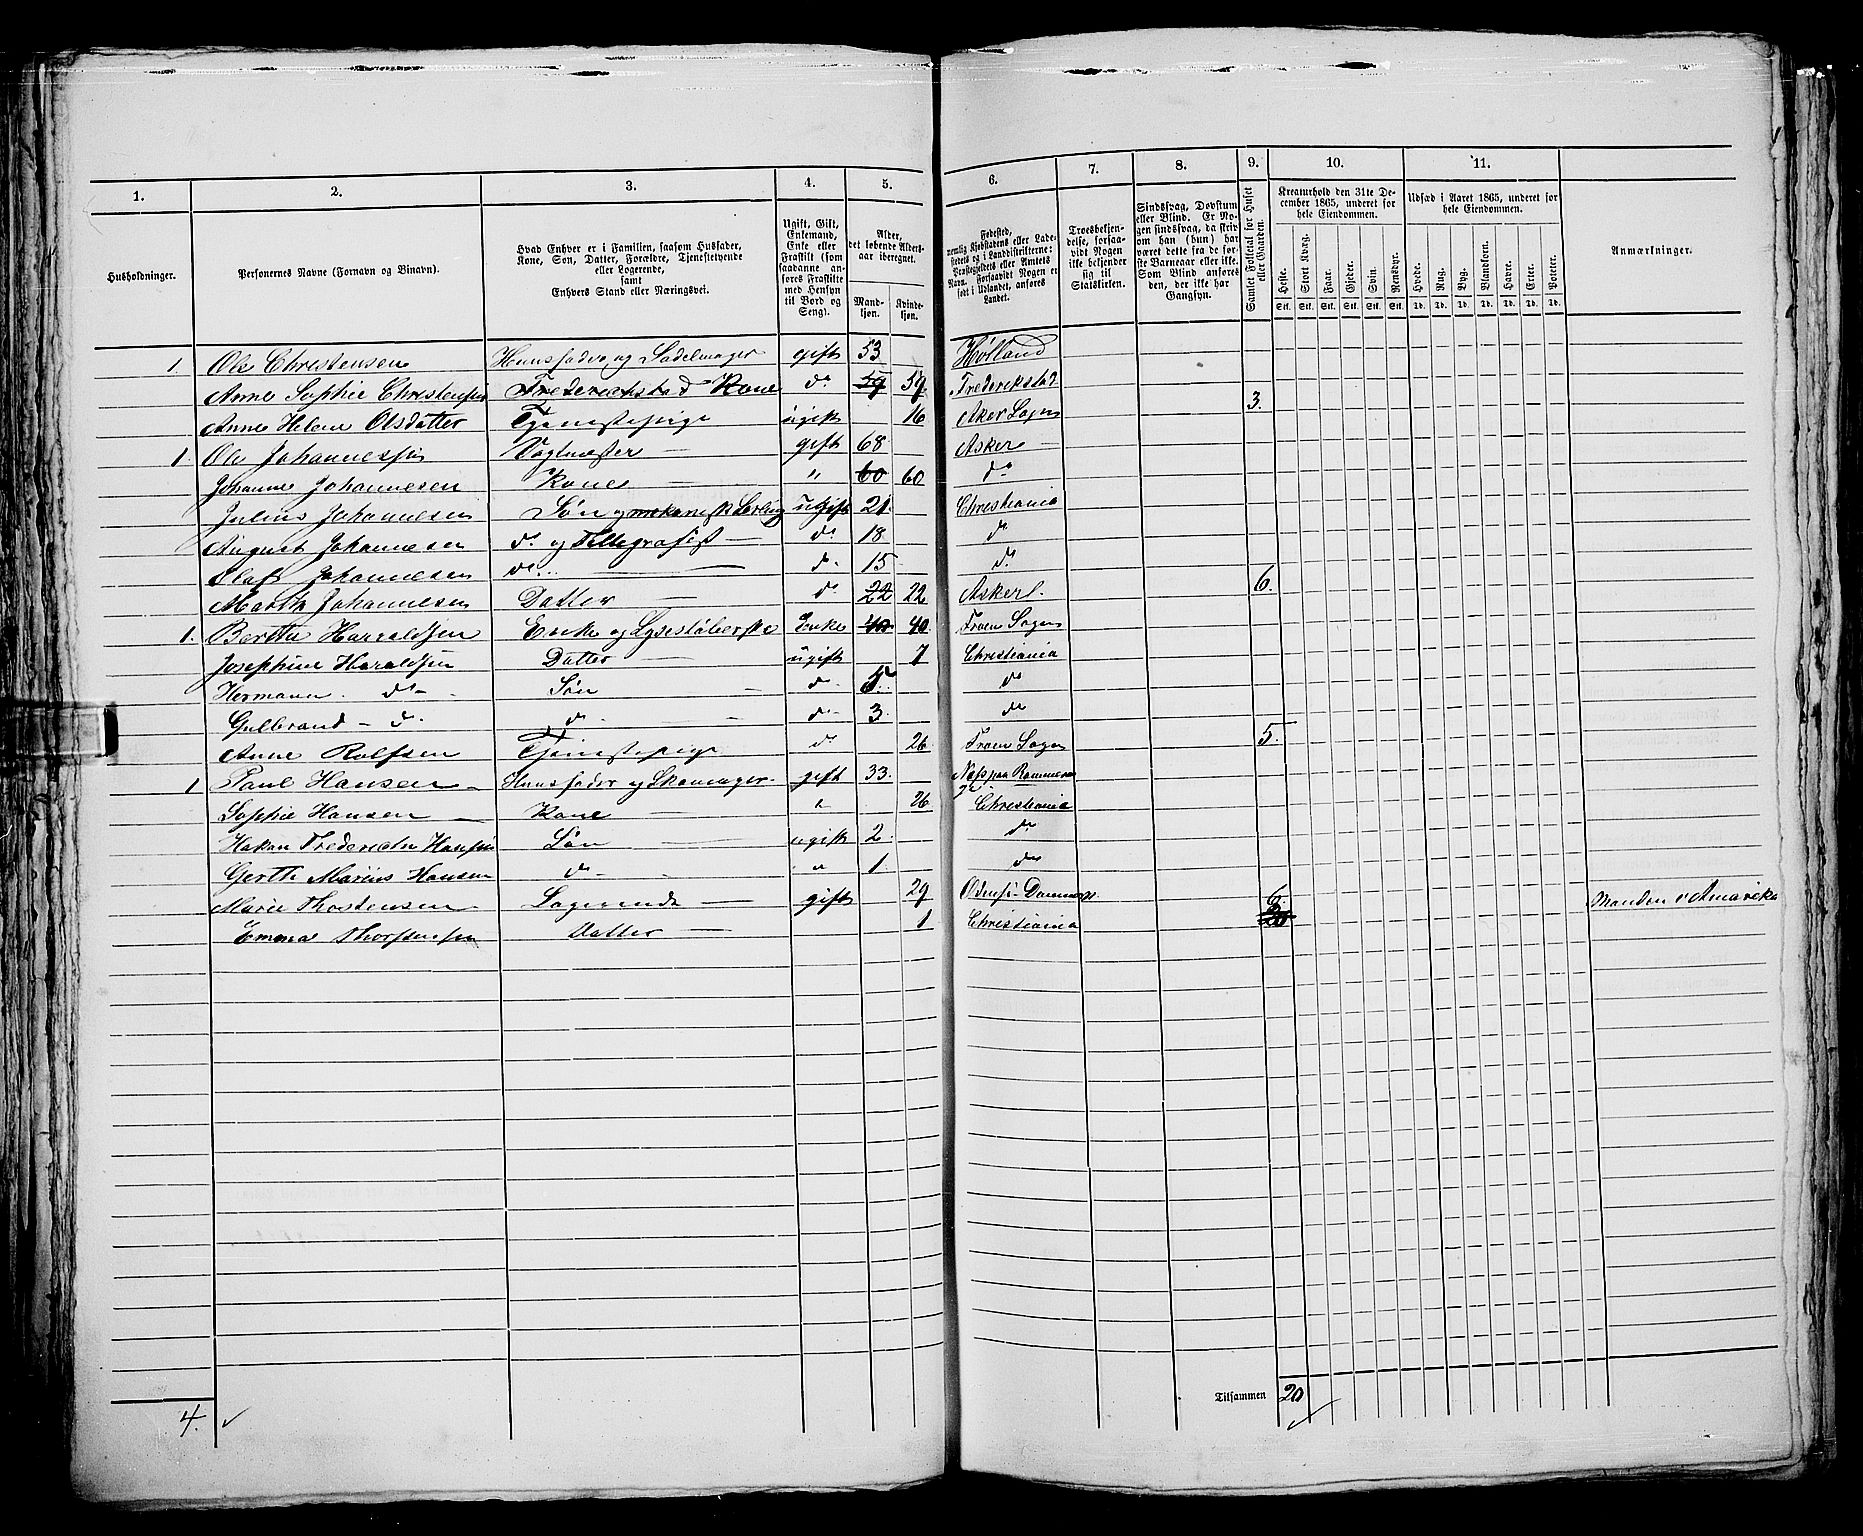 1. 2. 3. 4. 5. 6. 7. 8. 9. 10. 11.
Husholdninger. Personernes Navne (Fornavn og Binavn). Hvad Enhver er i Familien, saasom Husfader, Kone, Søn, Datter, Forældre, Tjenestetyende eller Logerende, samt Enhvers Stand eller Næringsvei. Ugift, Gift, Enkemand, Enke eller Fraskilt (som saadanne anføres Fraskilte med Hensyn til Bord og Seng). Alder, det løbende Aldersaar iberegnet. Mandkjøn. Kvindekjøn.
Fødested, nemlig Kjøbstadens eller Ladestedets og i Landdistrikterne: Præstegjeldets eller Amtets Navn. Forsaavidt Nogen er født i Udlandet, anføres Landet. Troesbekjendelse, forsaavidt Nogen ikke bekjender sig til Statskirken. Sindssvag, Døvstum eller Blind. Er Nogen sindssvag, da skrives om han (hun) har været dette fra de første Barneaar eller ikke. Som Blind anføres den, der ikke har Gangsyn. Samlet Folketal for Huset eller Gaarden.
Kreaturhold den 31te December 1865, underet for hele Eiendommen. Heste. Stort Kvæg. Faar. Gjeder. Svin. Rensdyr.
Udsæd i Aaret 1865, underet for hele Eiendommen. Hvede. Rug. Byg. Blandkorn. Havre. Erter. Poteter. Anmærkninger.
1 Ole Christensen Huusfader og Sadelmager gift 53 Hølland
Anne Sophie Christensen Frederichstad Kone d° 59 59. Frederikstad
Anne Helene Olsdatter Tjenestepige ugift 16 Aker Sogn 3.
1. Ole Johannessen Vogtmester gift 68 Asker
Johanne Johannesen Kone " 60 60 d°
Julius Johannesen Søn og mekanisk ugift 21. Christiania
August Johannesen d. og Tellegrafist d° 18 d°
Olaf Johannesen d° d° 15 d°
Martha Johannesen Datter d° 22 22 Asker 6.
1. Berthe Haraldsen Enke og Enke 40 40. Froen Sogn
Josephine Haraldsen Datter ugift 7 Christiania
Hermann d° Søn d° 5. d°
Gulbrand d. d° d° 3. d°
Anne Rolfsen Tjenestepige d° 26 Froen Sogn 5.
1 Paul Hansen Huusfader og Skomager gift 33. Næs paa Rommerige
Sophie Hansen Kone " 26 Christiania
Hakon Frederich Hansen Søn ugift 2. d°
Gerth Marius Hansen d° " 1. d°
Marie Thostensen Logerende gift 29 Odense Danmark 6. Manden i Amerika
Emma Thorstensen Datter 1 Christiania 20
Tilsammen 20
4.